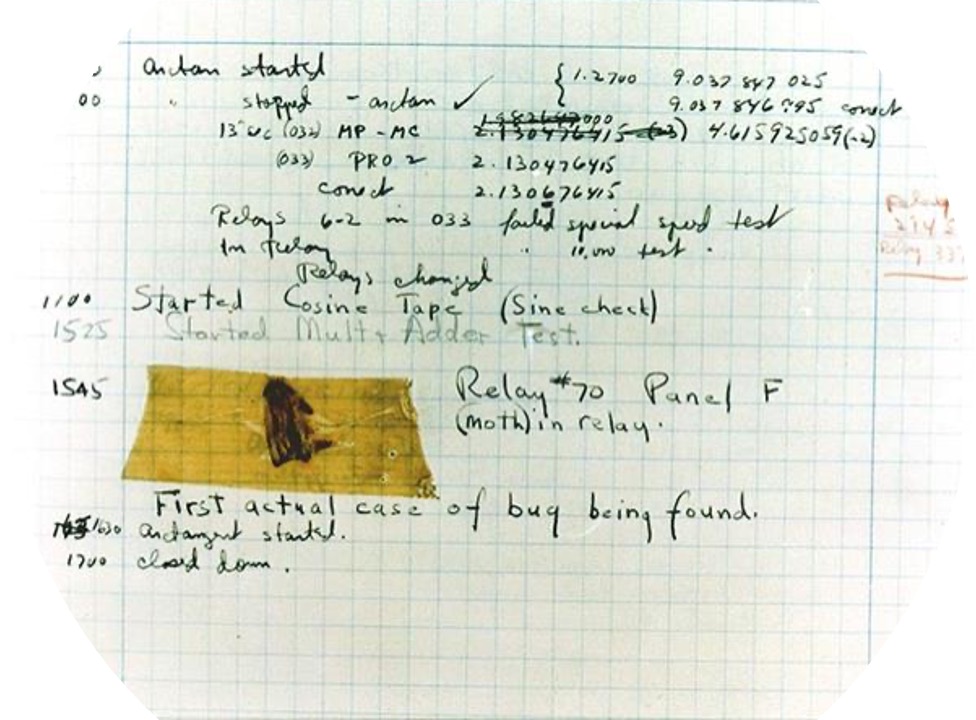 arctan started { 1.2700 9.037 847 025
00 " stopped - arctan ✓ 9.037 846 795 correct
13" uc (032) MP - MC 2.130476415 (-3) 4.615925059(-2)
(033) PRO 2 2.130476415
correct 2.130676415
Relays 6-2 in 033 failed special speed test
In Relay " 10,000 test .
Relays changed
Relay
Relay 337
1100 Started Cosine Tape (Sine check)
1525 Started Mult + Adder Test.
1545 Relay #70 Panel F
(moth) in relay.
First actual case of bug being found.
1630 arctangent started.
1700 closed down.